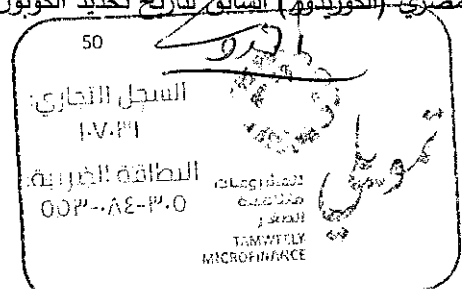 مصري (الكوريدور) السابق لتاريخ تحديد الكوبون
50
السجل التجاري:
١٠٧٠٣١
البطاقة الضريبية:
٥٥٣-٠٨٤-٣٠٥
تمويلي
للمشروعات
متناهية
الصغر
TAMWEELY
MICROFINANCE